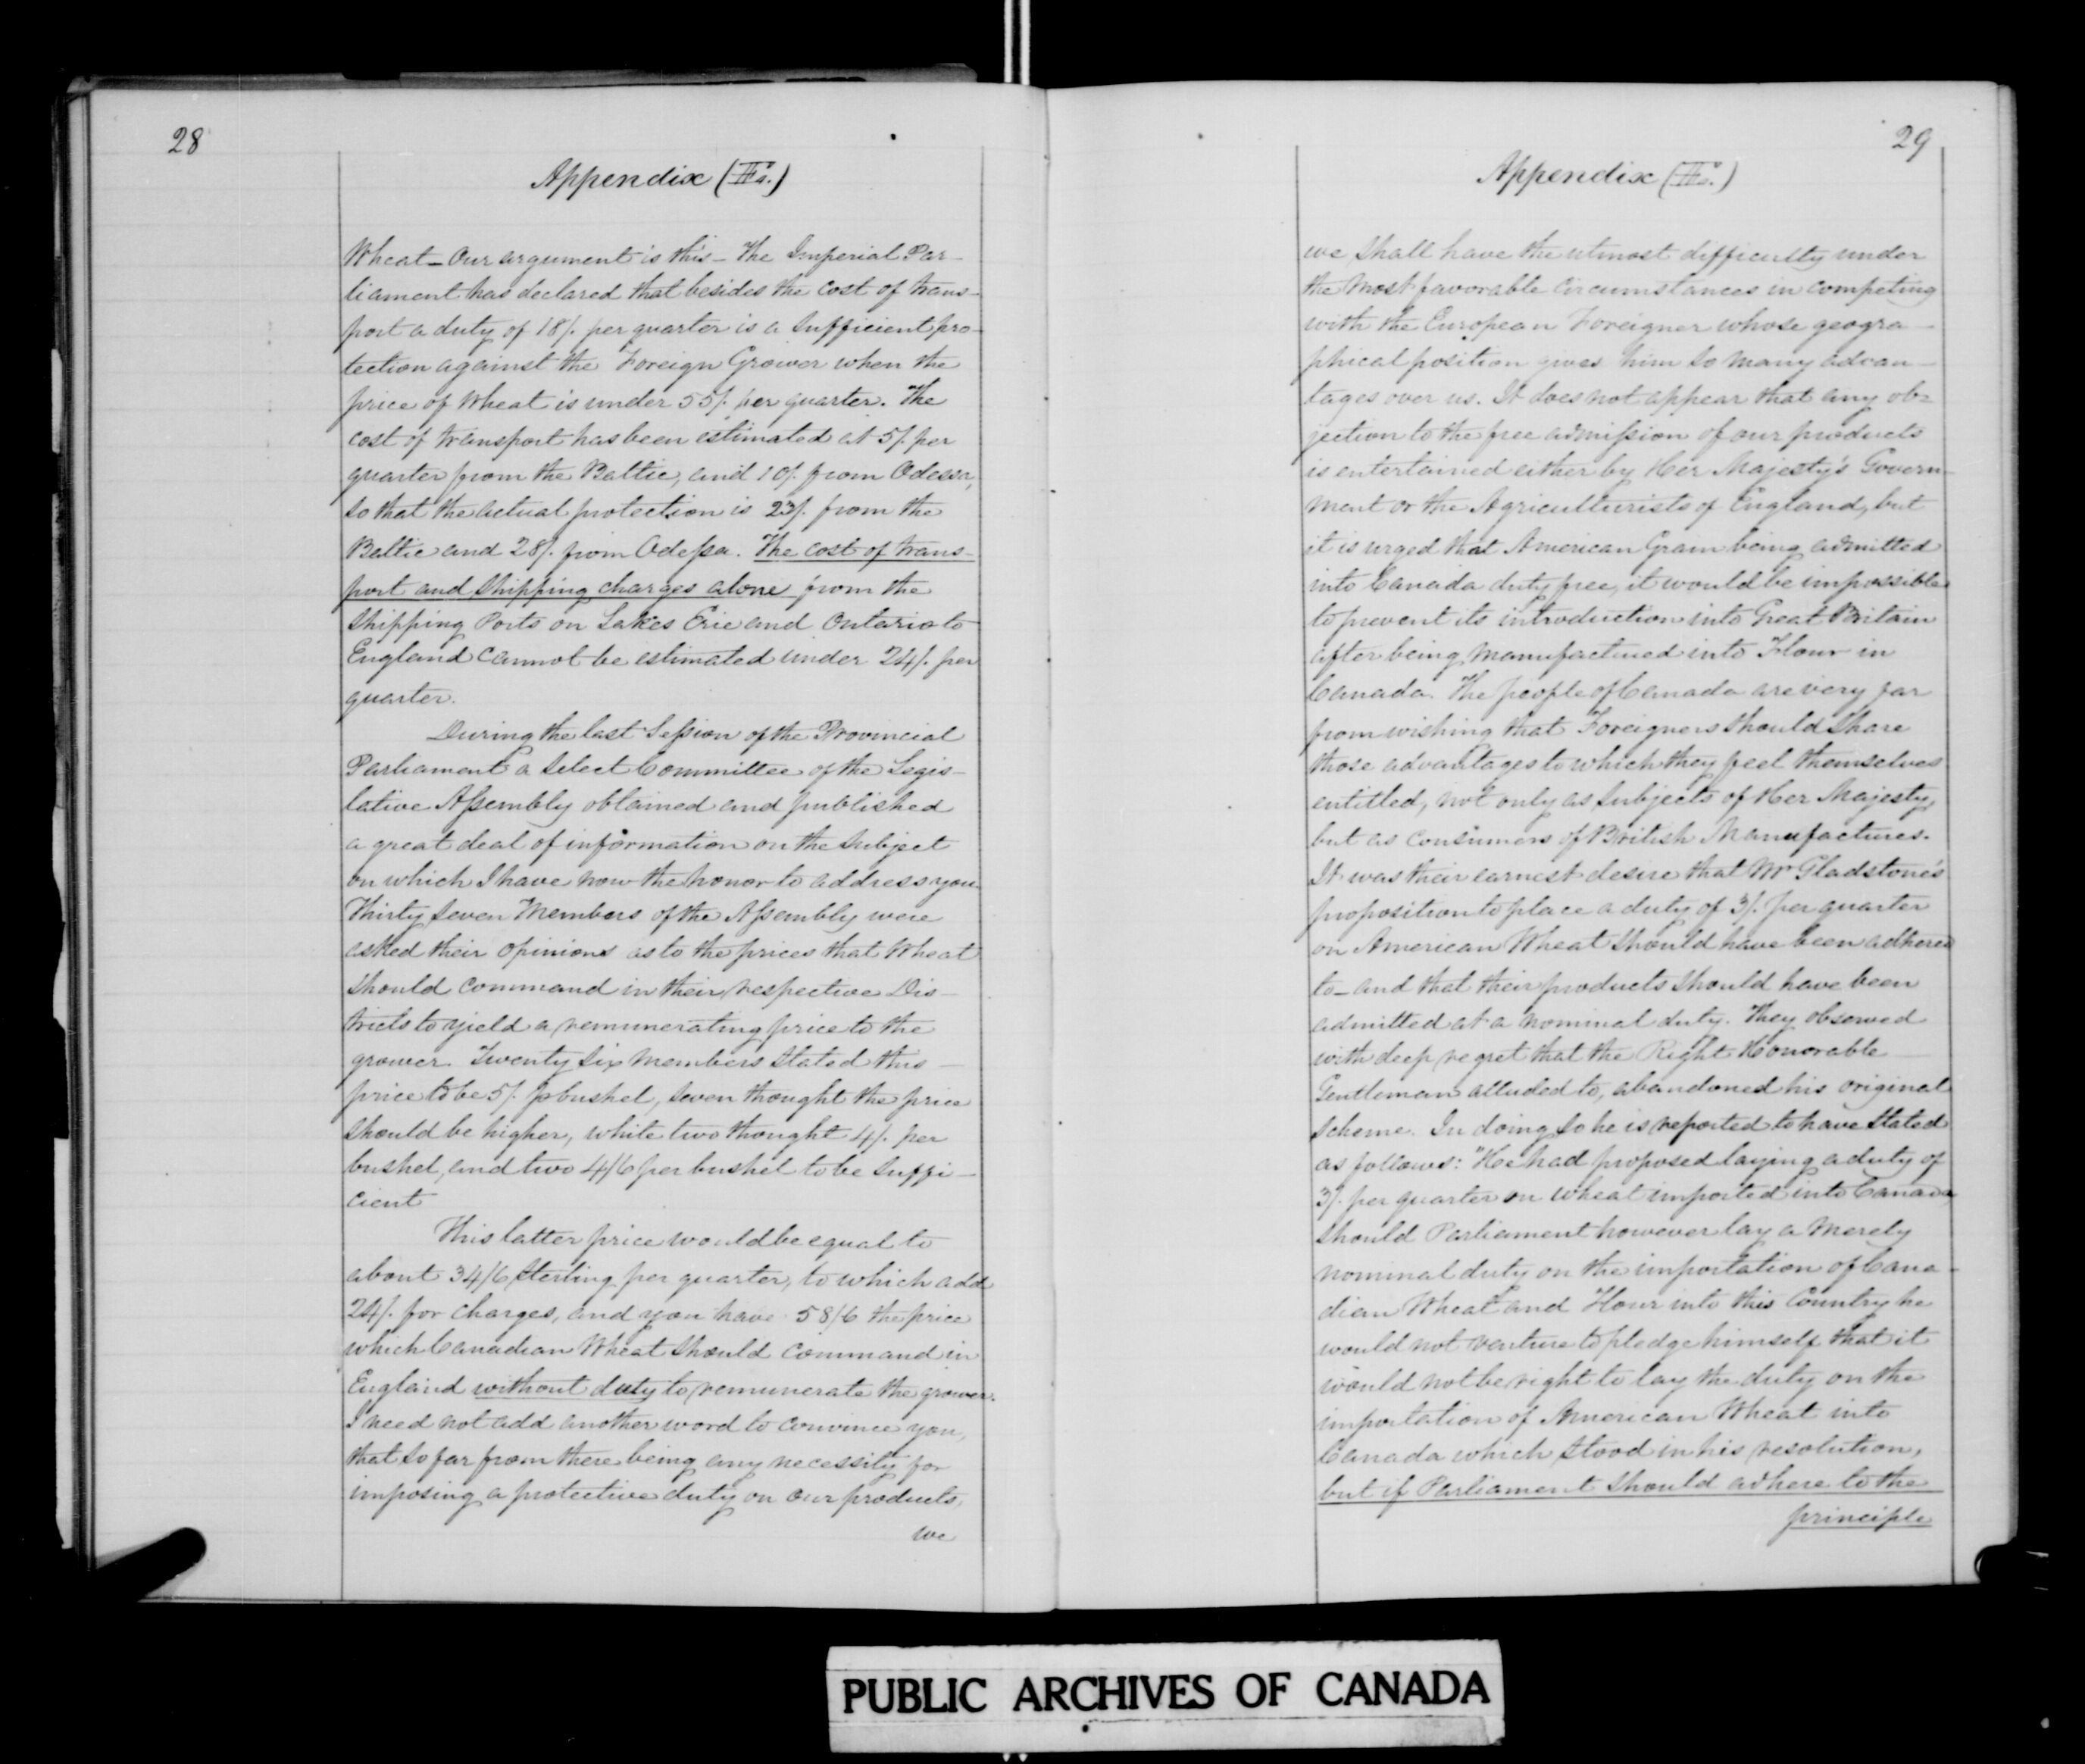 28
Appendix (IIa.)
Wheat_ Our argument is this_ The Imperial Par-
liament has declared that besides the cost of trans-
port a duty of 18/. per quarter is a sufficient pro-
tection against the Foreign Grower when the
price of Wheat is under 55/. per quarter. The
cost of transport has been estimated at 5/. per
quarter from the Baltic, and 10/. from Odessa,
so that the actual protection is 23/. from the
Baltic and 28/. from Odessa. The cost of trans-
port and shipping charges alone from the
Shipping Ports on Lakes Erie and Ontario to
England cannot be estimated under 24/. per
quarter.
During the last Session of the Provincial
Parliament a Select Committee of the Legis-
lative Assembly obtained and published
a great deal of information on the subject
on which I have now the honor to address you.
Thirty seven Members of the Assembly were
asked their opinions as to the prices that Wheat
should command in their respective Dis-
tricts to yield a remunerating price to the
grower. Twenty six members stated this
price to be 5/. p bushel, seven thought the price
should be higher, while two thought 4/. per
bushel, and two 4/6 per bushel to be suffi-
cient
This latter price would be equal to
about 34/6 Sterling per quarter, to which add
24/. for charges, and you have 58/6 the price
which Canadian Wheat should command in
England without duty to remunerate the grower.
I need not add another word to convince you,
that so far from there being any necessity for
imposing a protective duty on our products,
we
29
Appendix (IIa.)
we shall have the utmost difficulty under
the most favorable circumstances in competing
with the European Foreigner whose geogra-
phical position gives him so many advan-
tages over us. It does not appear that any ob=
jection to the free admission of our products
is entertained either by Her Majesty's Govern-
ment or the Agriculturists of England, but
it is urged that American Grain being admitted
into Canada duty free, it would be impossible
to prevent its introduction into Great Britain
after being manufactured into Flour in
Canada. The people of Canada are very far
from wishing that Foreigners should share
those advantages to which they feel themselves
entitled, not only as subjects of Her Majesty,
but as consumers of British Manufactures.
It was their earnest desire that Mr Gladstone's
proposition to place a duty of 3/. per quarter
on American Wheat should have been adhered
to_ and that their products should have been
admitted at a nominal duty. They observed
with deep regret that the Right Honorable
Gentleman alluded to, abandoned his original
scheme. In doing so he is reported to have stated
as follows: "He had proposed laying a duty of
3/. per quarter on wheat imported into Canada,
should Parliament however lay a merely
nominal duty on the importation of Cana-
dian Wheat and Flour into this Country he
would not venture to pledge himself that it
would not be right to lay the duty on the
importation of American Wheat into
Canada which stood in his resolution,
but if Parliament should adhere to the
principle
PUBLIC ARCHIVES OF CANADA